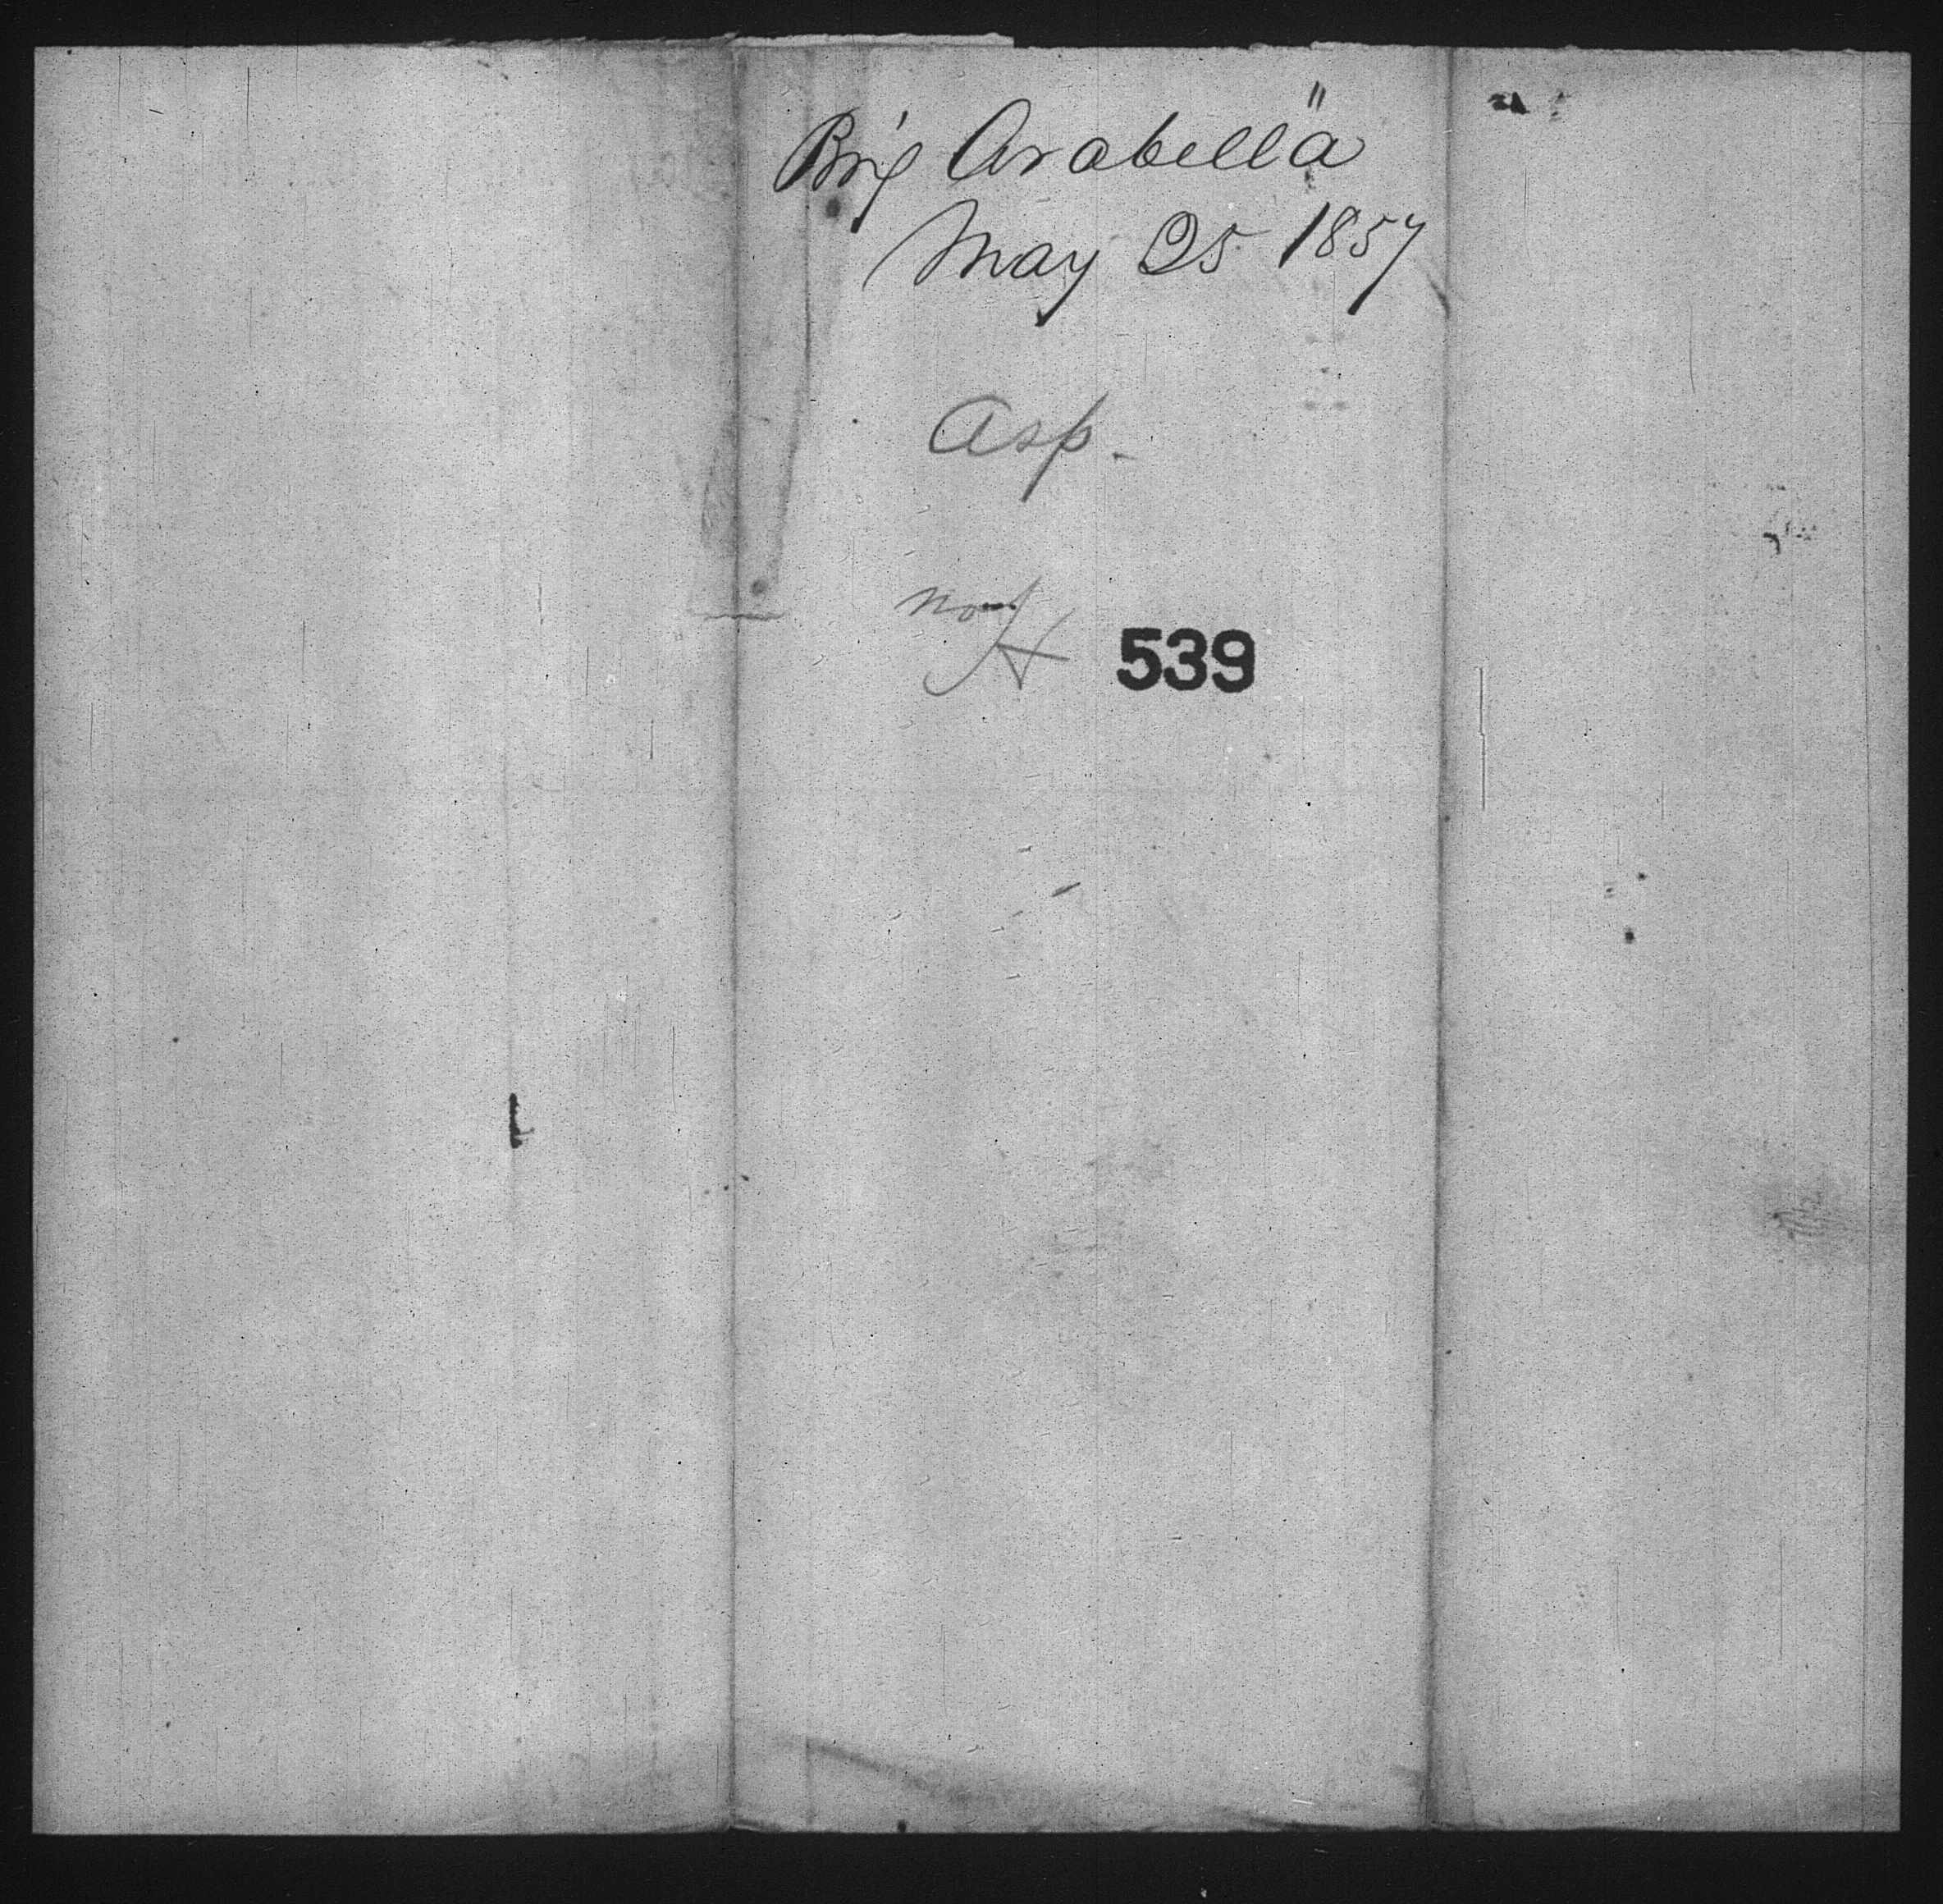 Brig Arabella"
May 25 1857
Asp.
H 539